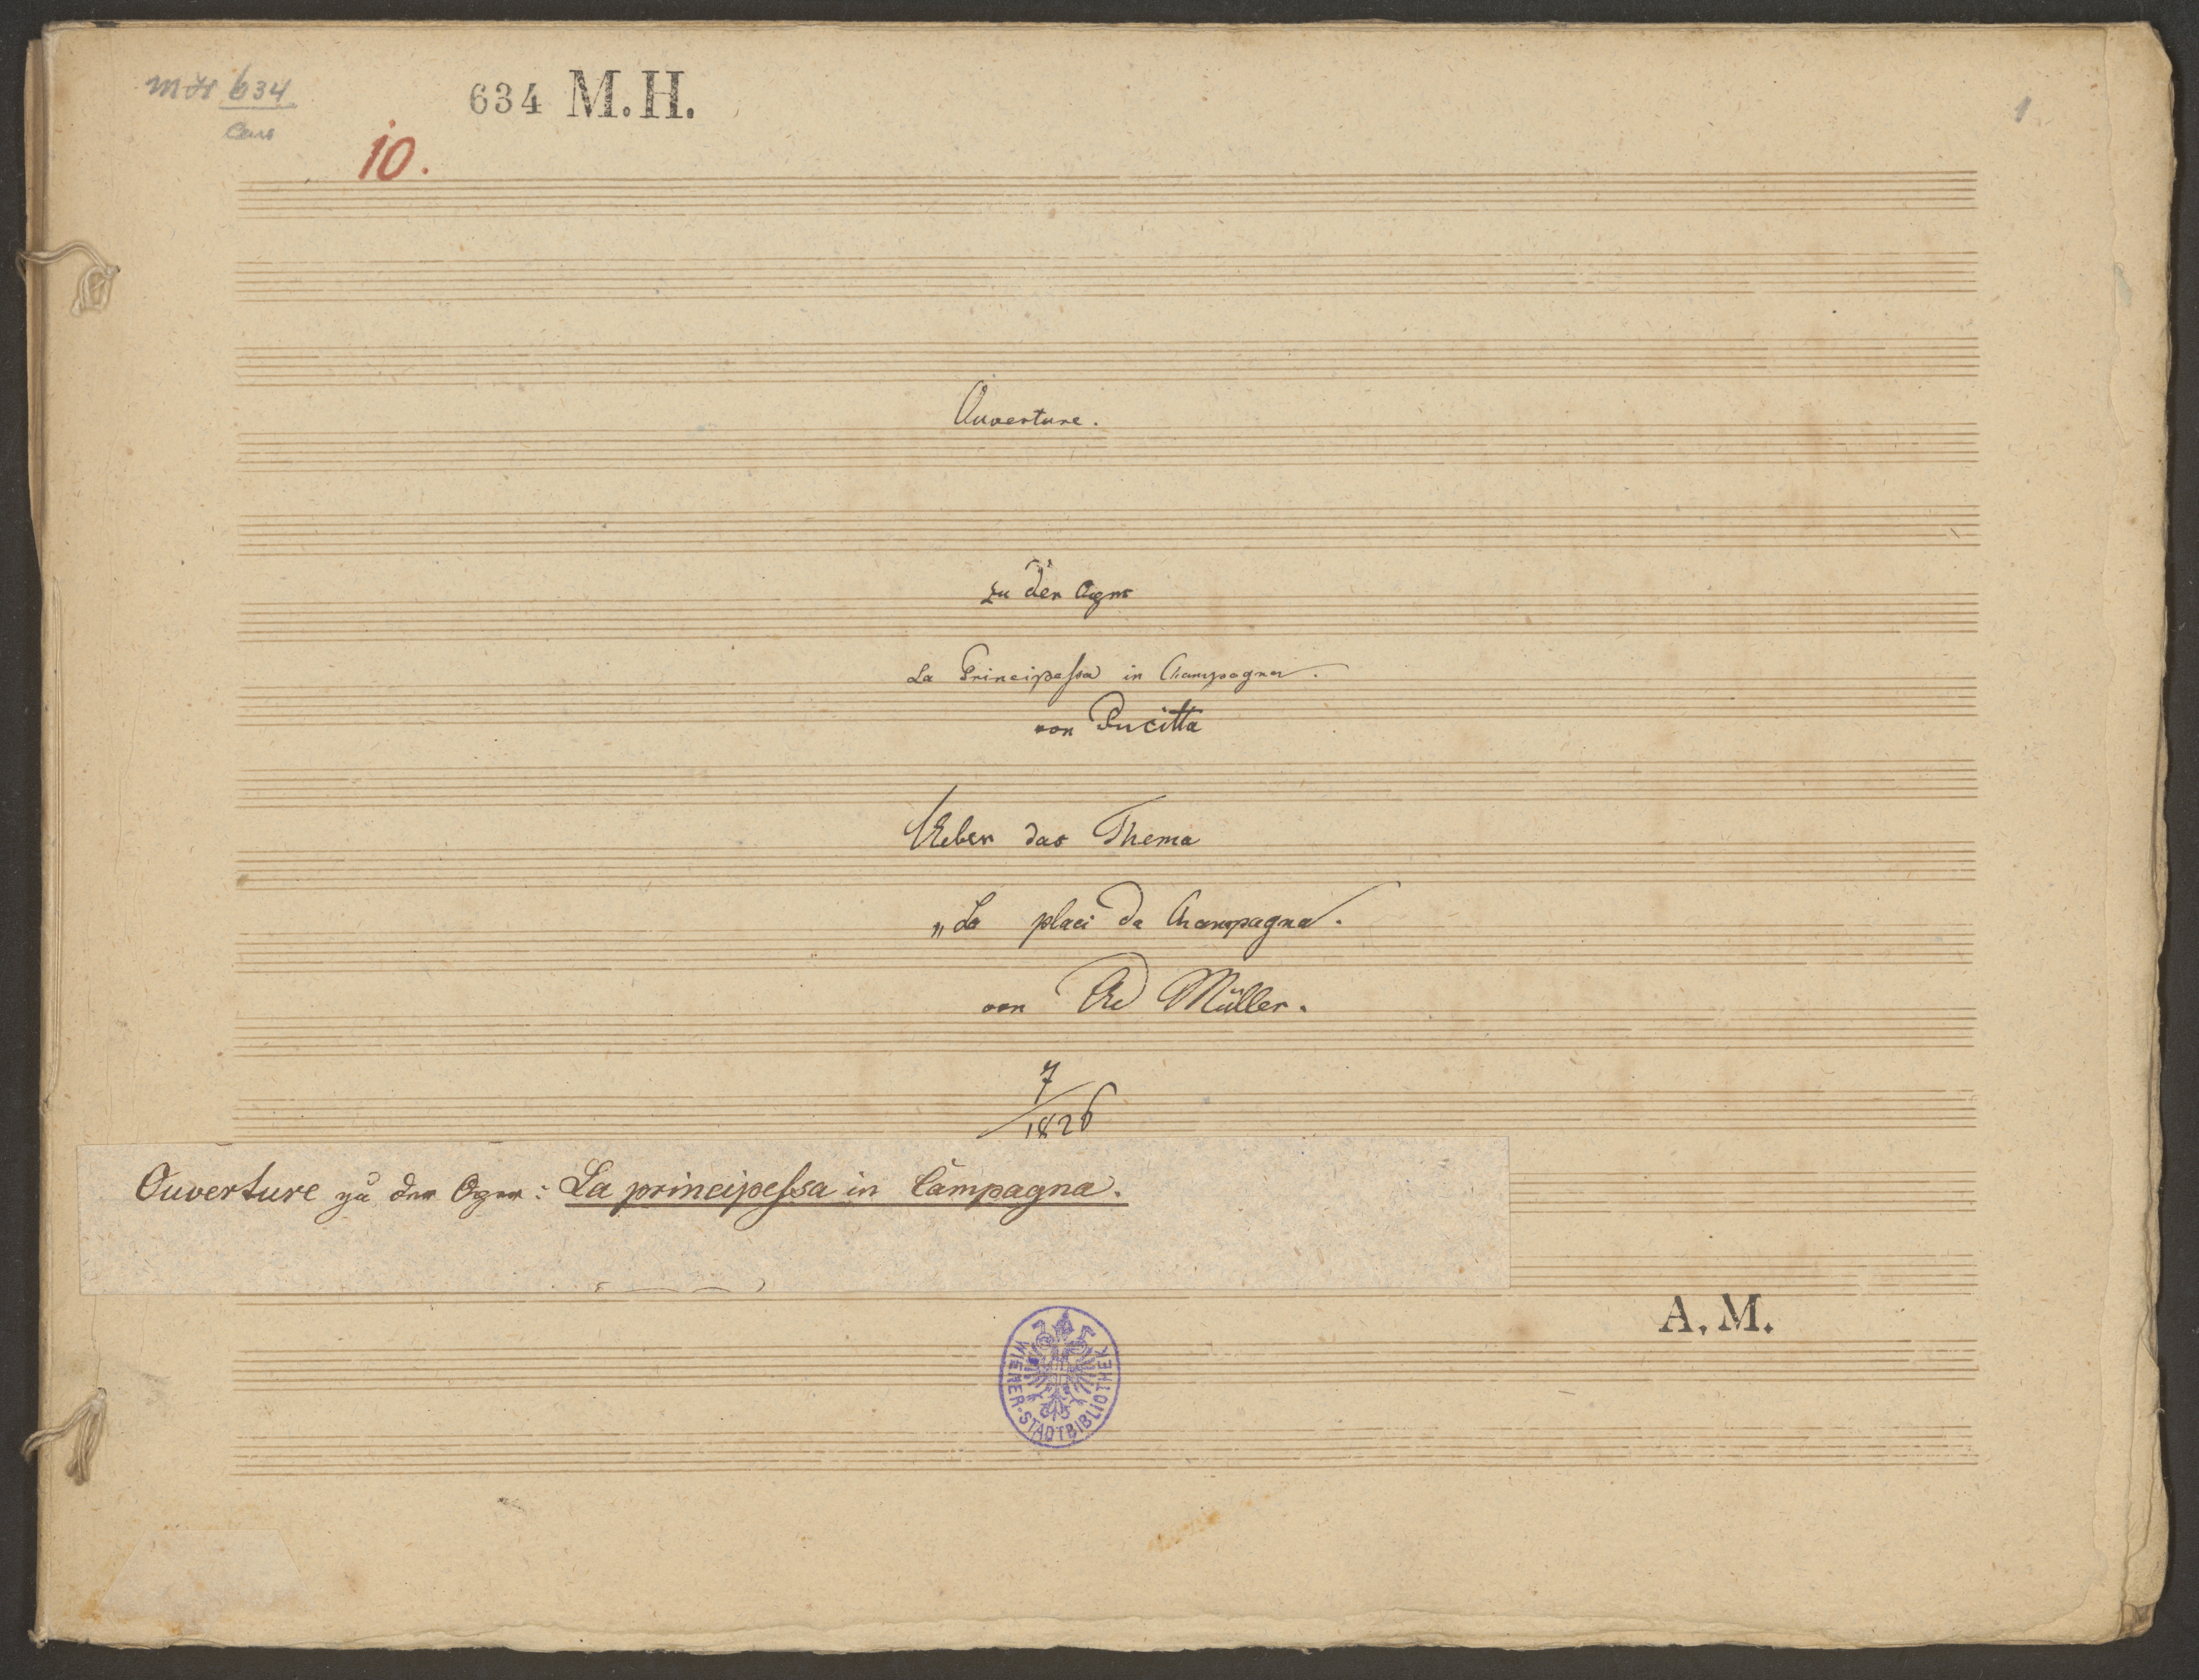 MH 634
634 M.H.
1
10.
Ouverture.
zu der Oper
La Principessa in Champagna.
von Pucitta
Ueber das Thema
„La placi da Champagna.
von Ad Müller.
7/1826
Ouverture zu der Oper: La principessa in Campagna.
A. M.
WIENER-STADTBIBLIOTHEK